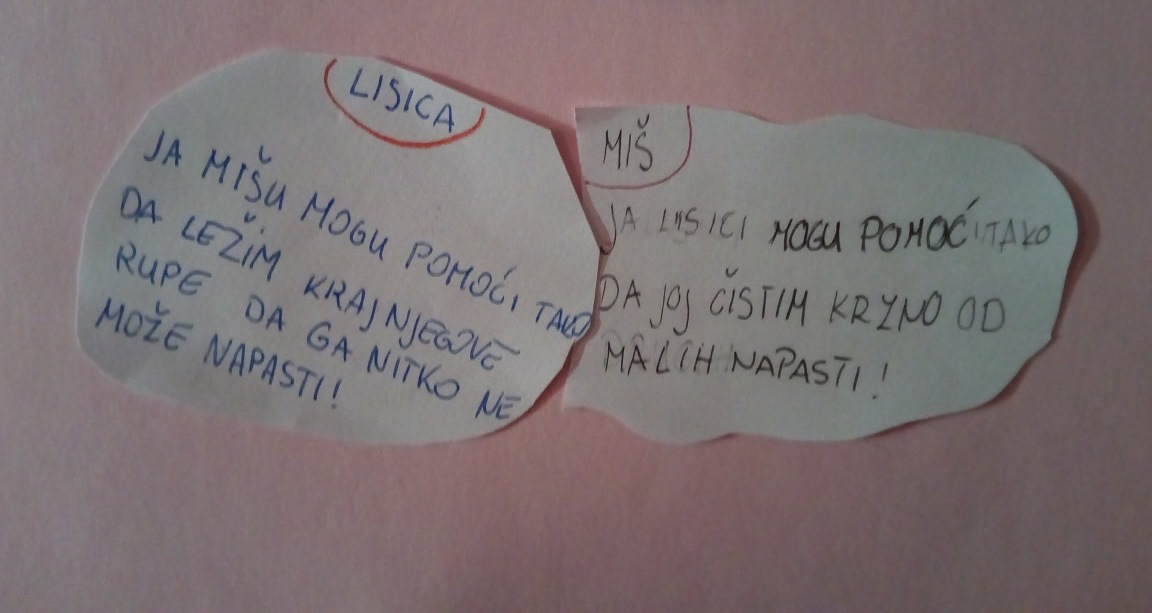 LISICA
JA MIŠU MOGU POMOĆI TAKO
DA LEŽIM KRAJ NJEGOVE
RUPE DA GA NITKO NE
MOŽE NAPASTI!
MIŠ
JA LISICI MOGU POMOĆI TAKO
DA JOJ ČISTIM KRZNO OD
MALIH NAPASTI!